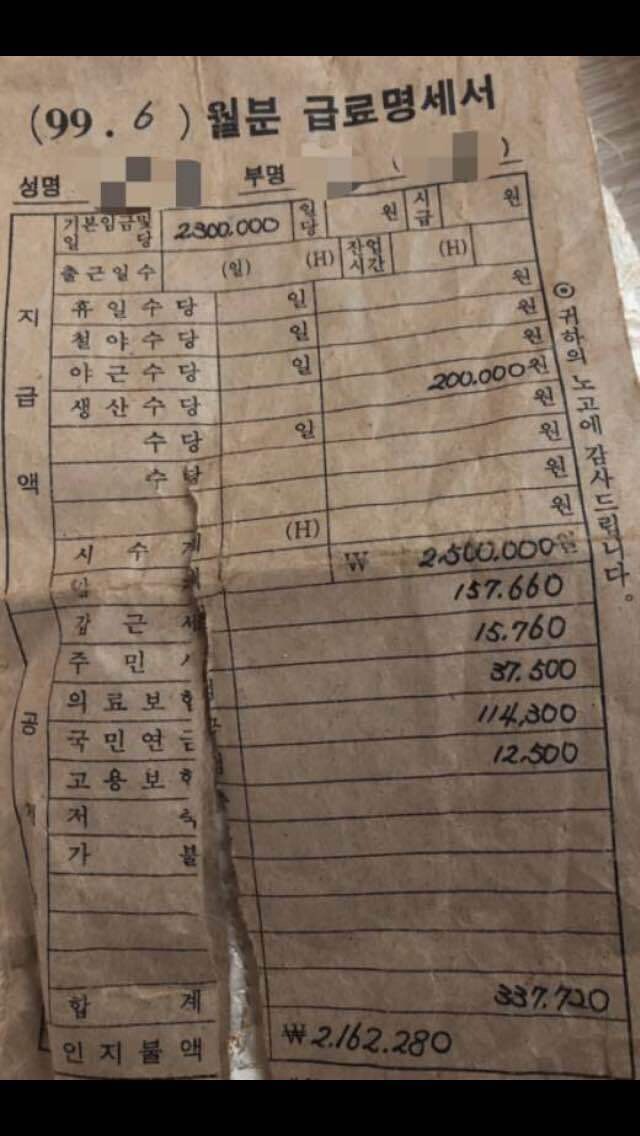 (99. 6 ) 월분 급료명세서
성명 부명 ( )
기본임금및 일당 2.300.000 일당 원 시급 원
출근일수 (일) (H) 잔업시간 (H)
휴일수당 일 원
철야수당 일 원
야근수당 일 원
생산수당 200.000원
수당 일 원
수당 원
원
(H) 원
지급액
₩ 2.500.000원
갑근세 157.660
주민 15.760
의료보험 37.500
국민연금 114,300
고용보험 12.500
저축
가불
공제
합계 337.720
인지불액 ₩2.162.280
⊙ 귀하의 노고에 감사드립니다.